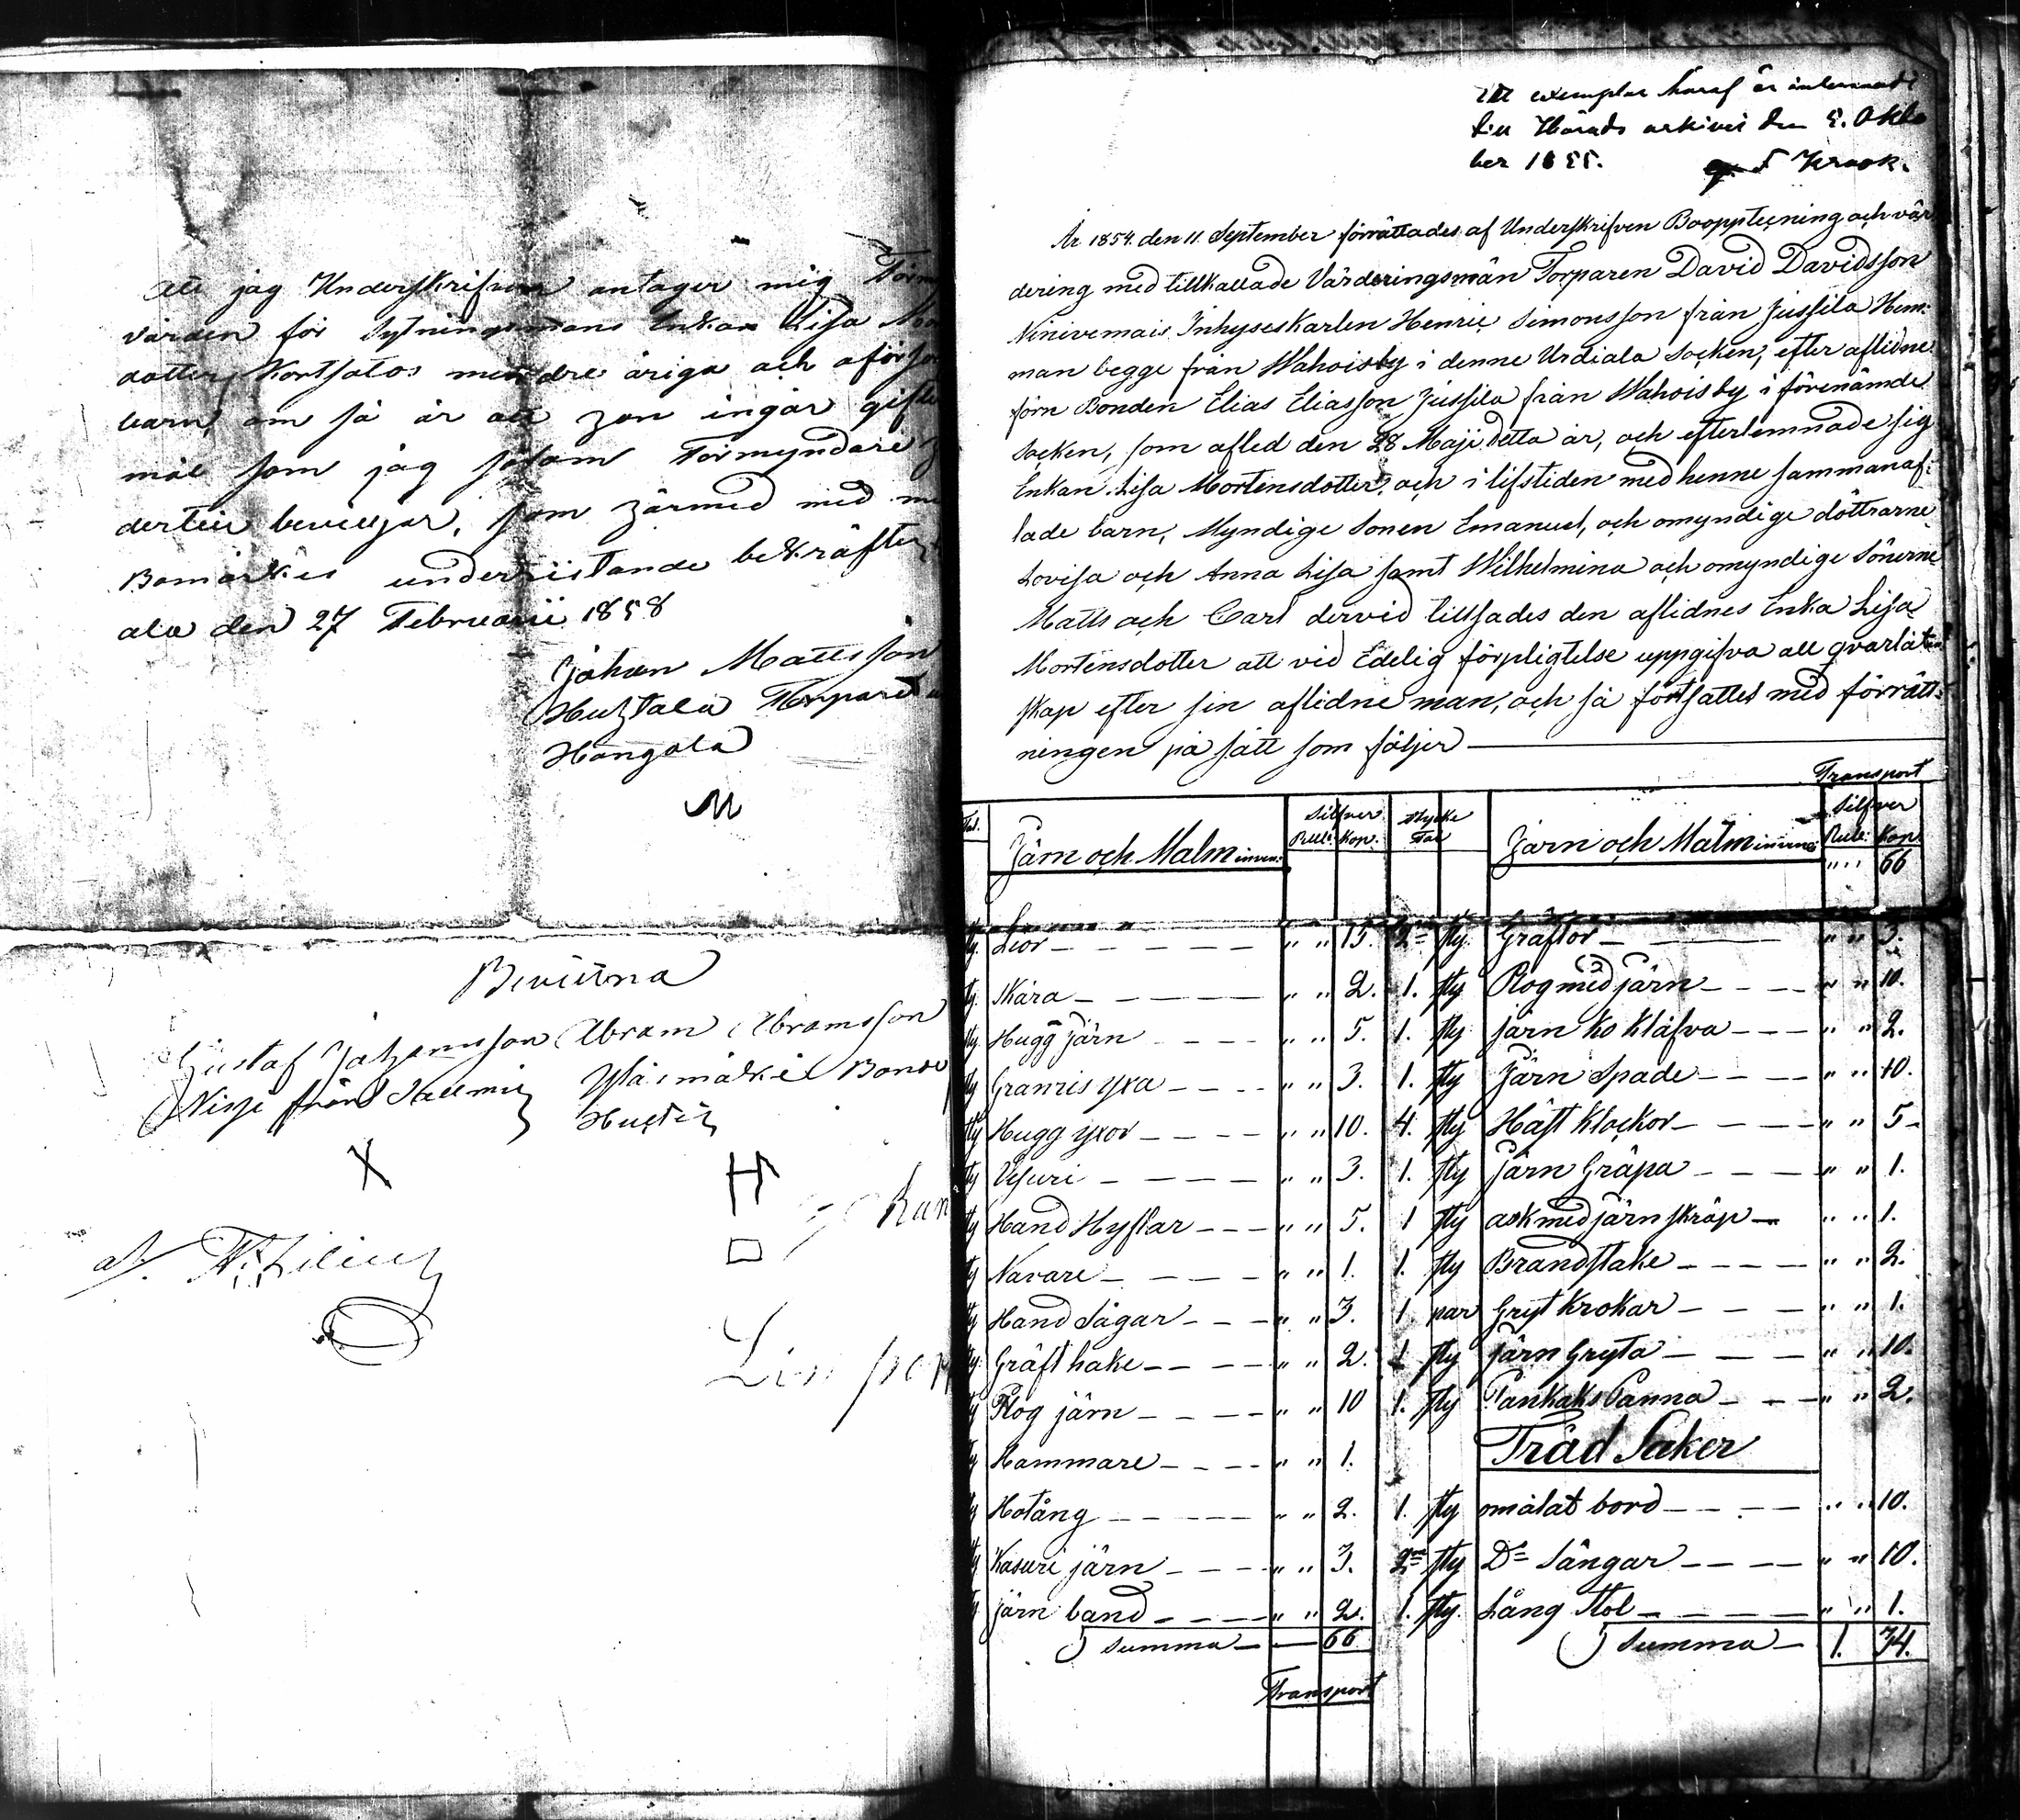 Att jag Underskrifven antager mig Förm
varden för Sytningsmans Enkan Lisa
dotter Kortsatos mindre åriga och oförsö
barn, om så är att hon ingår gifte
mål som jag såsom Förmyndare
dertill beviljar, som härmed med
Bomärkes undersistande bekräftes
ala den 27 Februarii 1858
Johan Mattsson
Huhtala Torpare
Hangala
M
Bevittna
Gustaf Johansson Abram Abramsson
från Bonde
X
Ett exemplar häraf är inlemnadt
till Härads arkivet den 5. Okto
ber 1855. Krook.
År 1854. den 11. September förrättades af Underskrifven Boopptecning och vär
dering med tillkallade Värderingsmän Torparen David Davidsson
Ninivemais Inhyseskarlen Henric Simonsson från Jussila Hem:
man begge från Wahoisby i denne Urdiala Socken, efter aflidne
förn Bonden Elias Eliasson Jussila från Wahoisby i förenämde
Socken, som afled den 28 Maji detta år, och efterlemnade sig
Enkan Lisa Mortensdotter, och i lifstiden med henne sammanaf:
lade barn, Myndige Sonen Emanuel, och omyndige döttrarne
Lovisa och Anna Lisa samt Wilhelmina och omyndige Sönerne
Matts och Carl dervid tillsades den aflidnes Enka Lisa
Mortensdotter att vid Edelig förpligtelse uppgifva all qvarlåten
skap efter sin aflidne man, och så fortsattes med förrätt:
ningen på sätt som följer
Transport
Tal. Järn och Malm Silfver Rub: Kop: Stycke Tal Järn och Malm Silfver Rub: Kop.
" " 66
sty. Lior " " 15. 2ne sty. Gräftor " " 3.
sty. Skära " " 2. 1. sty Plog med järn " " 10.
sty. Hugg järn " " 5. 1. sty järn Ko Klåfva " " 2.
sty Granris yxa " " 3. 1. sty Järn Spade " " 10.
sty Hugg yxor " " 10. 4. sty Häst Klockor " " 5
sty Vesuri " " 3. 1. sty järn Gräpa " " 1.
sty Hand Hyflar " " 5. 1 sty ask med järn skräp " " 1.
sty Navare " " 1. 1. sty Brandstake " " 2.
sty Hand Sågar " " 3. 1 par Gryt Krokar " " 1.
sty. Gräft hake " " 2. 1 sty järn Gryta " " 10.
sty Plog järn " " 10 1. sty Pankaks Panna " " 2.
sty Hammare " " 1. Träd Saker
sty Hotång " " 2. 1. sty omålat bord " " 10.
sty Kasuri järn " " 3. 2ne sty Do Sängar " " 10.
sty järn band " " 2. 1. sty. Lång Stol " " 1.
Summa 66 Summa 1. 34.
Transport